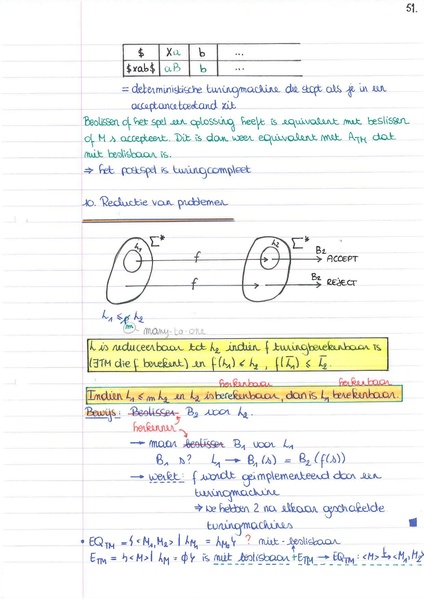 51.
$ Xa b ...
$xab$ aB b ...
= deterministische turingmachine die stopt als je in een
acceptancetoestand zit
Beslissen of het spel een oplossing heeft is equivalent met beslissen
of M s accepteert. Dit is dan weer equivalent met A_TM dat
niet beslisbaar is.
⇒ het postspel is turingcompleet
10. Reductie van problemen
L₁ Σ* L₂ Σ*
f B₂ → ACCEPT
f B₂ → REJECT
L₁ ≤m L₂
many-to-one
L is reduceerbaar tot L₂ indien f turingberekenbaar is
(∃TM die f berekent) en f(L₁) ≤ L₂, f(L̄₁) ≤ L̄₂
herkenbaar herkenbaar
Indien L₁ ≤m L₂ en L₂ is berekenbaar, dan is L₁ berekenbaar.
Bewijs: Beslisser B₂ voor L₂.
herkenner
→ maar beslisser B₁ voor L₁
B₁ s? L₁ → B₁(s) = B₂(f(s))
→ werkt: f wordt geïmplementeerd door een
turingmachine
⇒ we hebben 2 na elkaar geschakelde
turingmachines
• EQ_TM = {<M₁, M₂> | L_M₁ = L_M₂} ? niet-beslisbaar
E_TM = {<M> | L_M = ϕ} is niet beslisbaar + E_TM → EQ_TM: <M> ↦ <M₁, M₂>